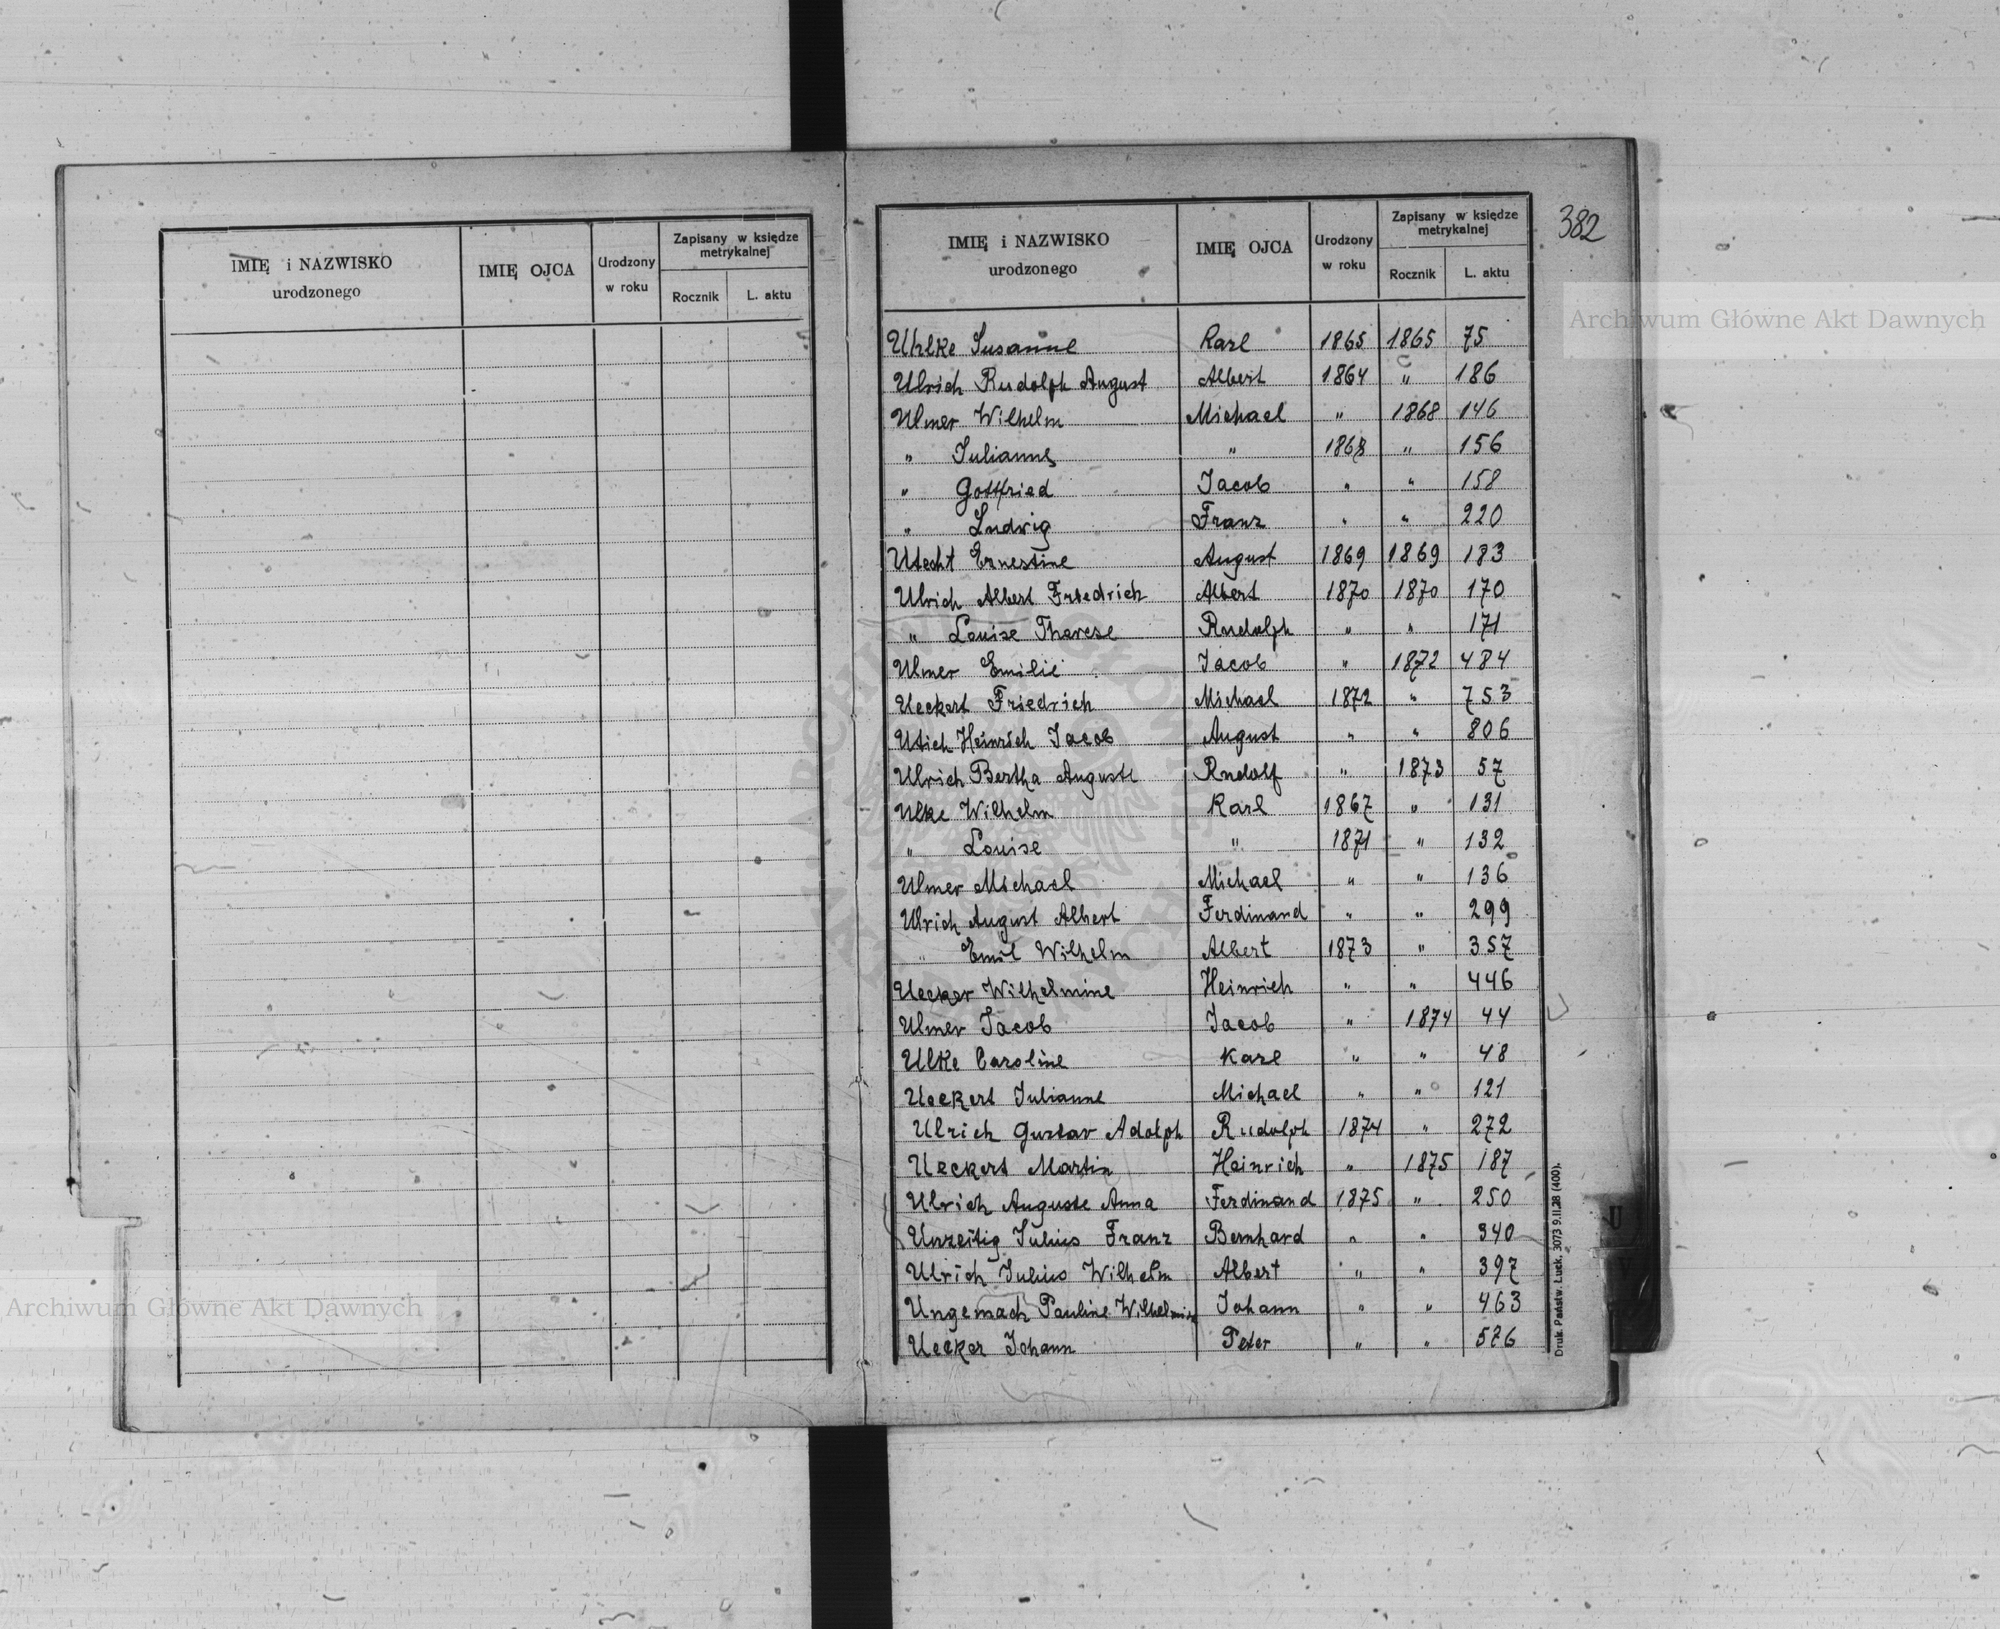 IMIĘ i NAZWISKO
urodzonego
IMIĘ OJCA
Urodzony
w roku
Zapisany w księdze
metrykalnej
Rocznik
L. aktu
382
IMIĘ i NAZWISKO
urodzonego
IMIĘ OJCA
Urodzony
w roku
Zapisany w księdze
metrykalnej
Rocznik
L. aktu
Uhlke Susanne Karl 1865 1865 75
Ulrich Rudolph August Albert 1864 " 186
Ulmer Wilhelm Michael " 1868 146
" Julianne " 1868 " 156
" Gottfried Jacob " " 158
" Ludwig Franz " " 220
Utecht Ernestine August 1869 1869 183
Ulrich Albert Friedrich Albert 1870 1870 170
" Louise Therese Rudolph " " 171
Ulmer Emilie Jacob " 1872 484
Ueckert Friedrich Michael 1872 " 753
Utich Heinrich Jacob August " " 806
Ulrich Bertha Auguste Rudolf " 1873 57
Ulke Wilhelm Karl 1867 " 131
" Louise " 1871 " 132
Ulmer Michael Michael " " 136
Ulrich August Albert Ferdinand " " 299
" Emil Wilhelm Albert 1873 " 357
Uecker Wilhelmine Heinrich " " 446
Ulmer Jacob Jacob " 1874 44
Ulke Caroline Karl " " 48
Ueckert Julianne Michael " " 121
Ulrich Gustav Adolph Rudolph 1874 " 272
Ueckert Martin Heinrich " 1875 187
Ulrich Auguste Anna Ferdinand 1875 " 250
Unzeitig Julius Franz Bernhard " " 340
Ulrich Julius Wilhelm Albert " " 397
Ungemach Pauline Wilhelmine Johann " " 463
Uecker Johann Peter " " 526
Druk. Państw. Łuck. 3073 9.II.28 (400).
U
Archiwum Główne Akt Dawnych
Archiwum Główne Akt Dawnych